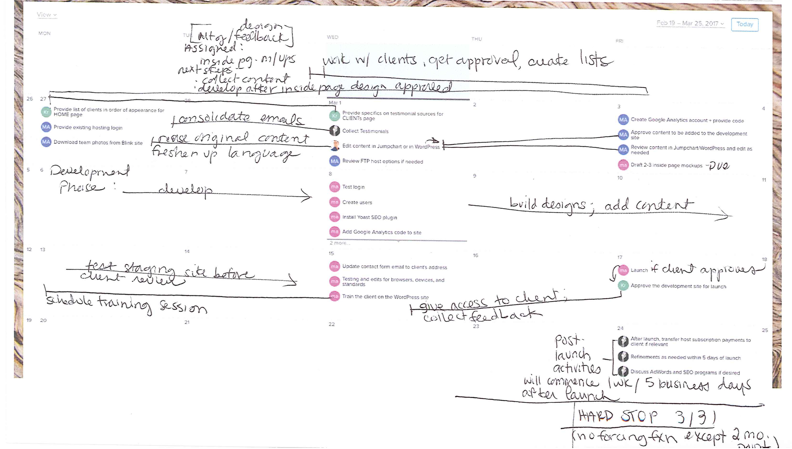 View
Feb 19 – Mar 25, 2017
Today
MON
WED
THU
design
feedback
Assigned:
inside pg. m/ups
next steps
• collect content
• develop after inside page design approved
work w/ clients, get approval, create lists
25 27
Mar 1
2
3
4
Provide list of clients in order of appearance for
HOME page
Provide existing hosting login
Download team photos from Blink site
consolidate emails
revise original content
freshen up language
Provide specifics on testimonial sources for
CLIENTs page
Collect Testimonials
Edit content in Jumpchart or in WordPress
Review FTP host options if needed
Create Google Analytics account + provide code
Approve content to be added to the development
site
Review content in Jumpchart/WordPress and edit as
needed
Draft 2-3 inside page mockups – Due
5 6
7
8
9
10
11
Development
Phase: develop
Test login
Create users
Install Yoast SEO plugin
Add Google Analytics code to site
2 more...
build designs; add content
12 13
14
15
16
17
18
test staging site before
client review
Update contact form email to client's address
Testing and edits for browsers, devices, and
standards
Train the client on the WordPress site
Launch if client approves
Approve the development site for launch
schedule training session
give access to client;
collect feedback
19 20
21
22
23
24
25
Post-
launch
activities
After launch, transfer host subscription payments to
client if relevant
Refinements as needed within 5 days of launch
Discuss AdWords and SEO programs if desired
will commence 1 wk / 5 business days
after launch
HARD STOP 3/31
(no forcing fxn except 2 mo.